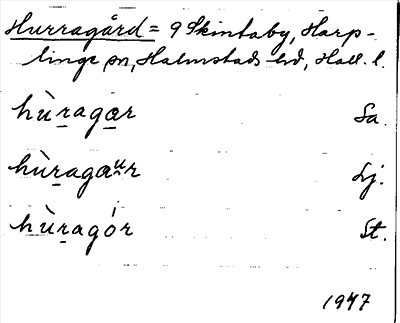 Hurragård = 9 Skintaby, Harp-
linge sn, Halmstads hd, Hall. l.
hùragar Sa.
hùragaur Lj.
hùragór St.
1947